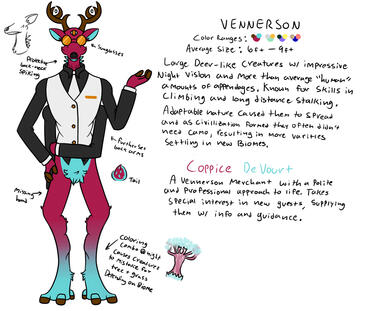 VENNERSON
Color Ranges:
Average Size: 6ft - 9ft
Large Deer-like Creatures w/ impressive
Night vision and More than average "human"
amounts of appendages. Known for Skills in
Climbing and long distance Stalking.
Adaptable nature Caused them to Spread
and as Civilization formed they often didn't
need camo, resulting in more varities
Settling in new Biomes.
Coppice DeVourt
A Vennerson Merchant with a Polite
and Professional approach to life. Takes
Special interest in new guests, Supplying
them w/ info and guidance.
Sunglasses
Protective
back-neck
Spiking
Further Set
back arms
Tail
Missing
hand
Coloring
Combo @ night
Causes Creatures
to mistake for
tree + grass
Depending on Biome